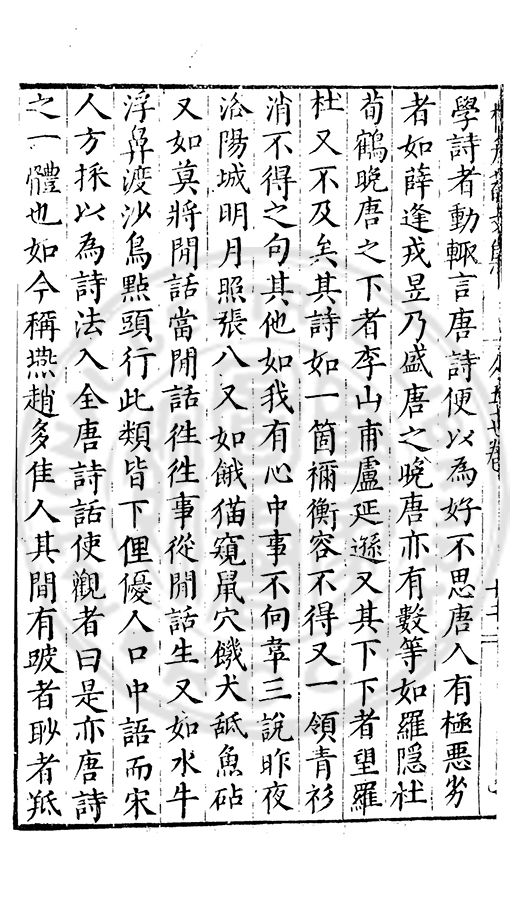 學詩者動輙言唐詩便以為好不思唐人有極惡劣
者如薛逢戎昱乃盛唐之晚唐亦有數等如羅隱杜
荀鶴晚唐之下者李山甫盧延遜又其下下者望羅
杜又不及矣其詩如一箇禰衡容不得又一領青衫
消不得之句其他如我有心中事不向韋三說昨夜
洛陽城明月照張八又如餓猫窺鼠穴饑犬舐魚砧
又如莫將閒話當閒話徃徃事從閒話生又如水牛
浮鼻渡沙鳥點頭行此類皆下俚優人口中語而宋
人方採以為詩法入全唐詩話使觀者曰是亦唐詩
之一體也如今稱燕趙多佳人其間有跛者眇者羝